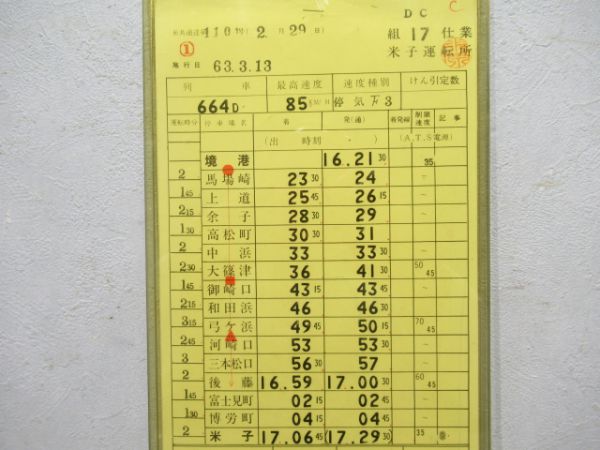 DC C
110号(2.月29日)
組17仕業
① 米子運転所
施行日 63.3.13
列車 最高速度 速度種別 けん引定数
664D 85KM/H 停気 3
運転時分 停車場名 着 発(通) 着発線 制限速度 記事
(出時刻・) (A.T.S電源)
境港 16.21 30 35
2 馬場崎 23 30 24
1 45 上道 25 45 26 15
2 15 余子 28 30 29
1 30 高松町 30 30 31
2 中浜 33 33 30
2 30 大篠津 36 41 30 50 45
1 45 御崎口 43 15 43 45
2 15 和田浜 46 46 30
3 15 弓ヶ浜 49 45 50 15 70 45
2 45 河崎口 53 53 30
3 三本松口 56 30 57
2 後藤 16.59 17.00 30 60 45
1 45 富士見町 02 15 02 45
1 30 博労町 04 15 04 45
2 米子 17.06 45 (17.29 30) 35